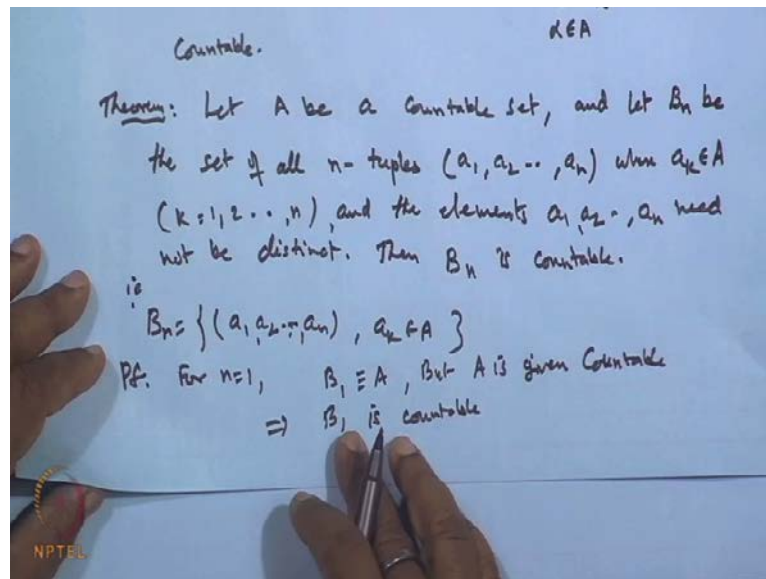 α ∈ A
Countable.
Theorem: Let A be a Countable set, and let Bn be
the set of all n-tuples (a1, a2 --, an) when ak ∈ A
(k = 1, 2 --, n), and the elements a1, a2 -, an need
not be distinct. Then Bn is countable.
ie
Bn = { (a1, a2, --, an) , ak ∈ A }
Pf. For n=1, B1 ≡ A , But A is given Countable
⇒ B1 is countable
NPTEL